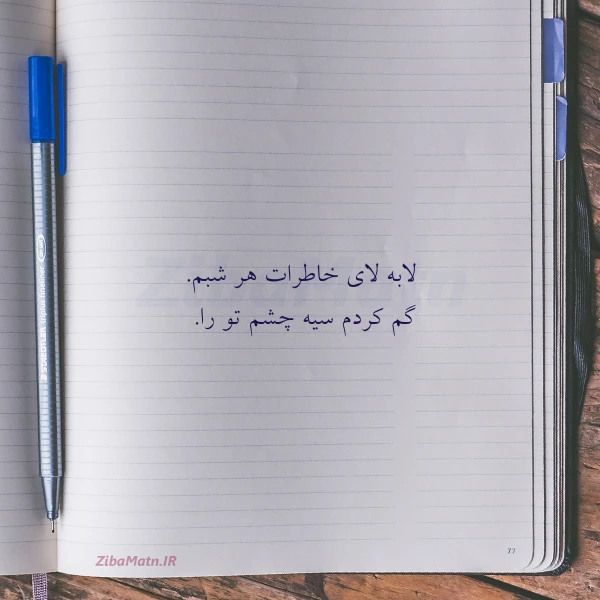 لابه لای خاطرات هر شبم.
گم کردم سیه چشم تو را.
ZibaMatn.IR
77